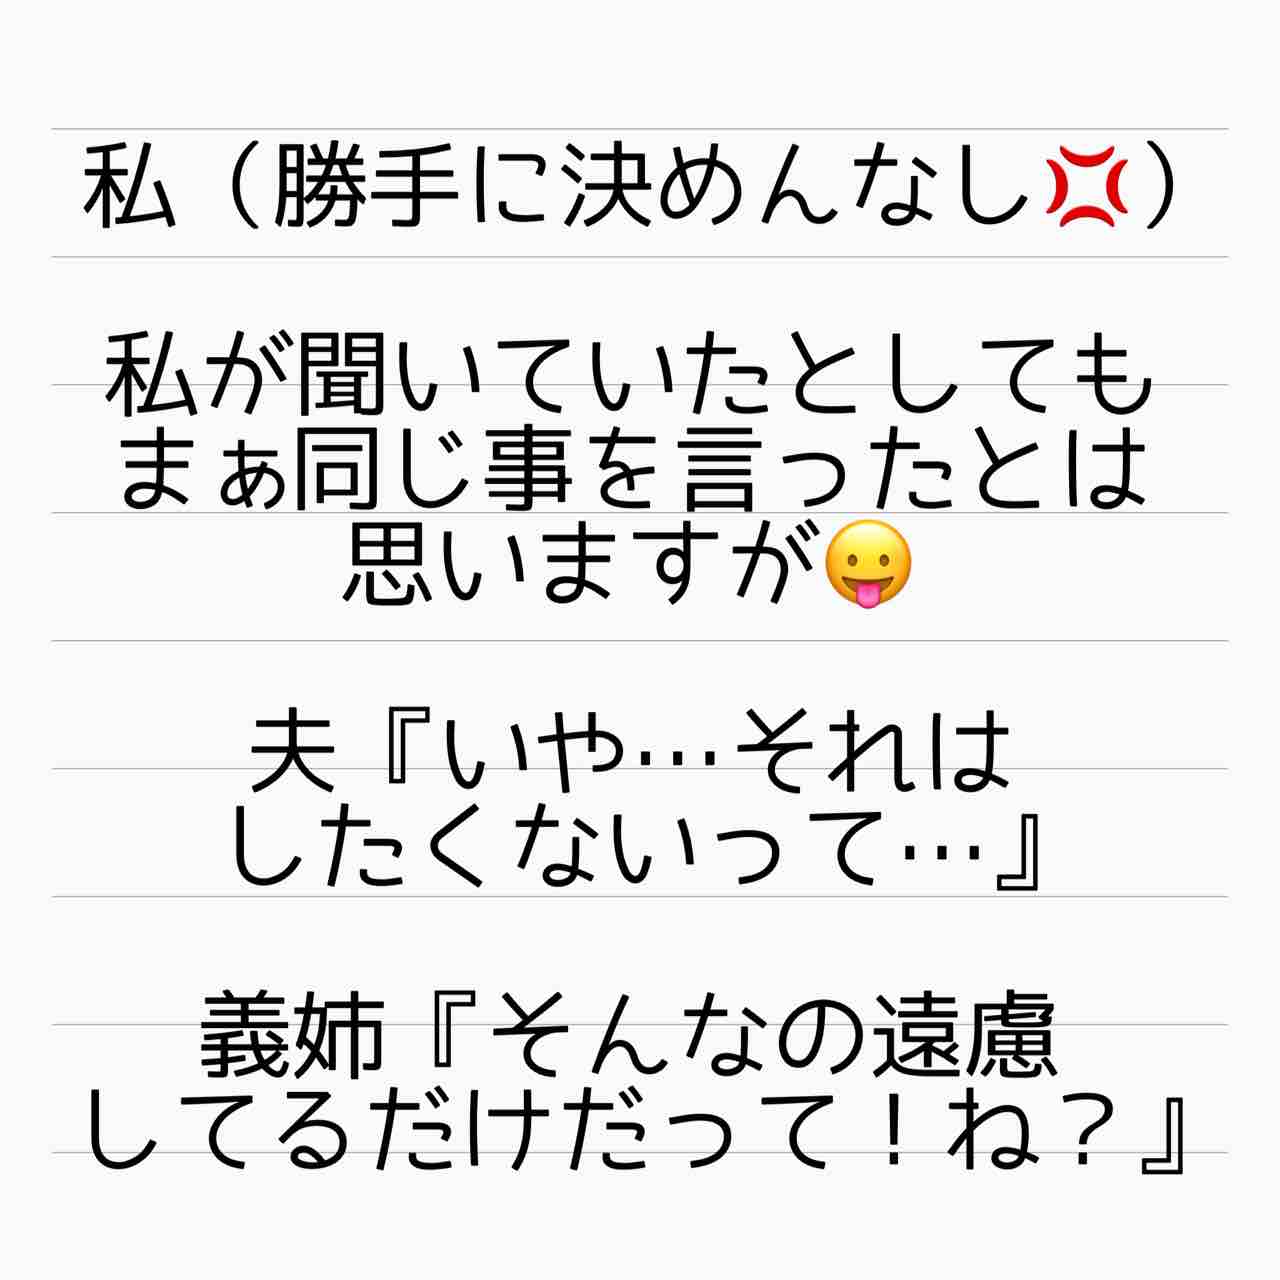 私（勝手に決めんなし💢）
私が聞いていたとしても
まぁ同じ事を言ったとは
思いますが😛
夫『いや…それは
したくないって…』
義姉『そんなの遠慮
してるだけだって！ね？』